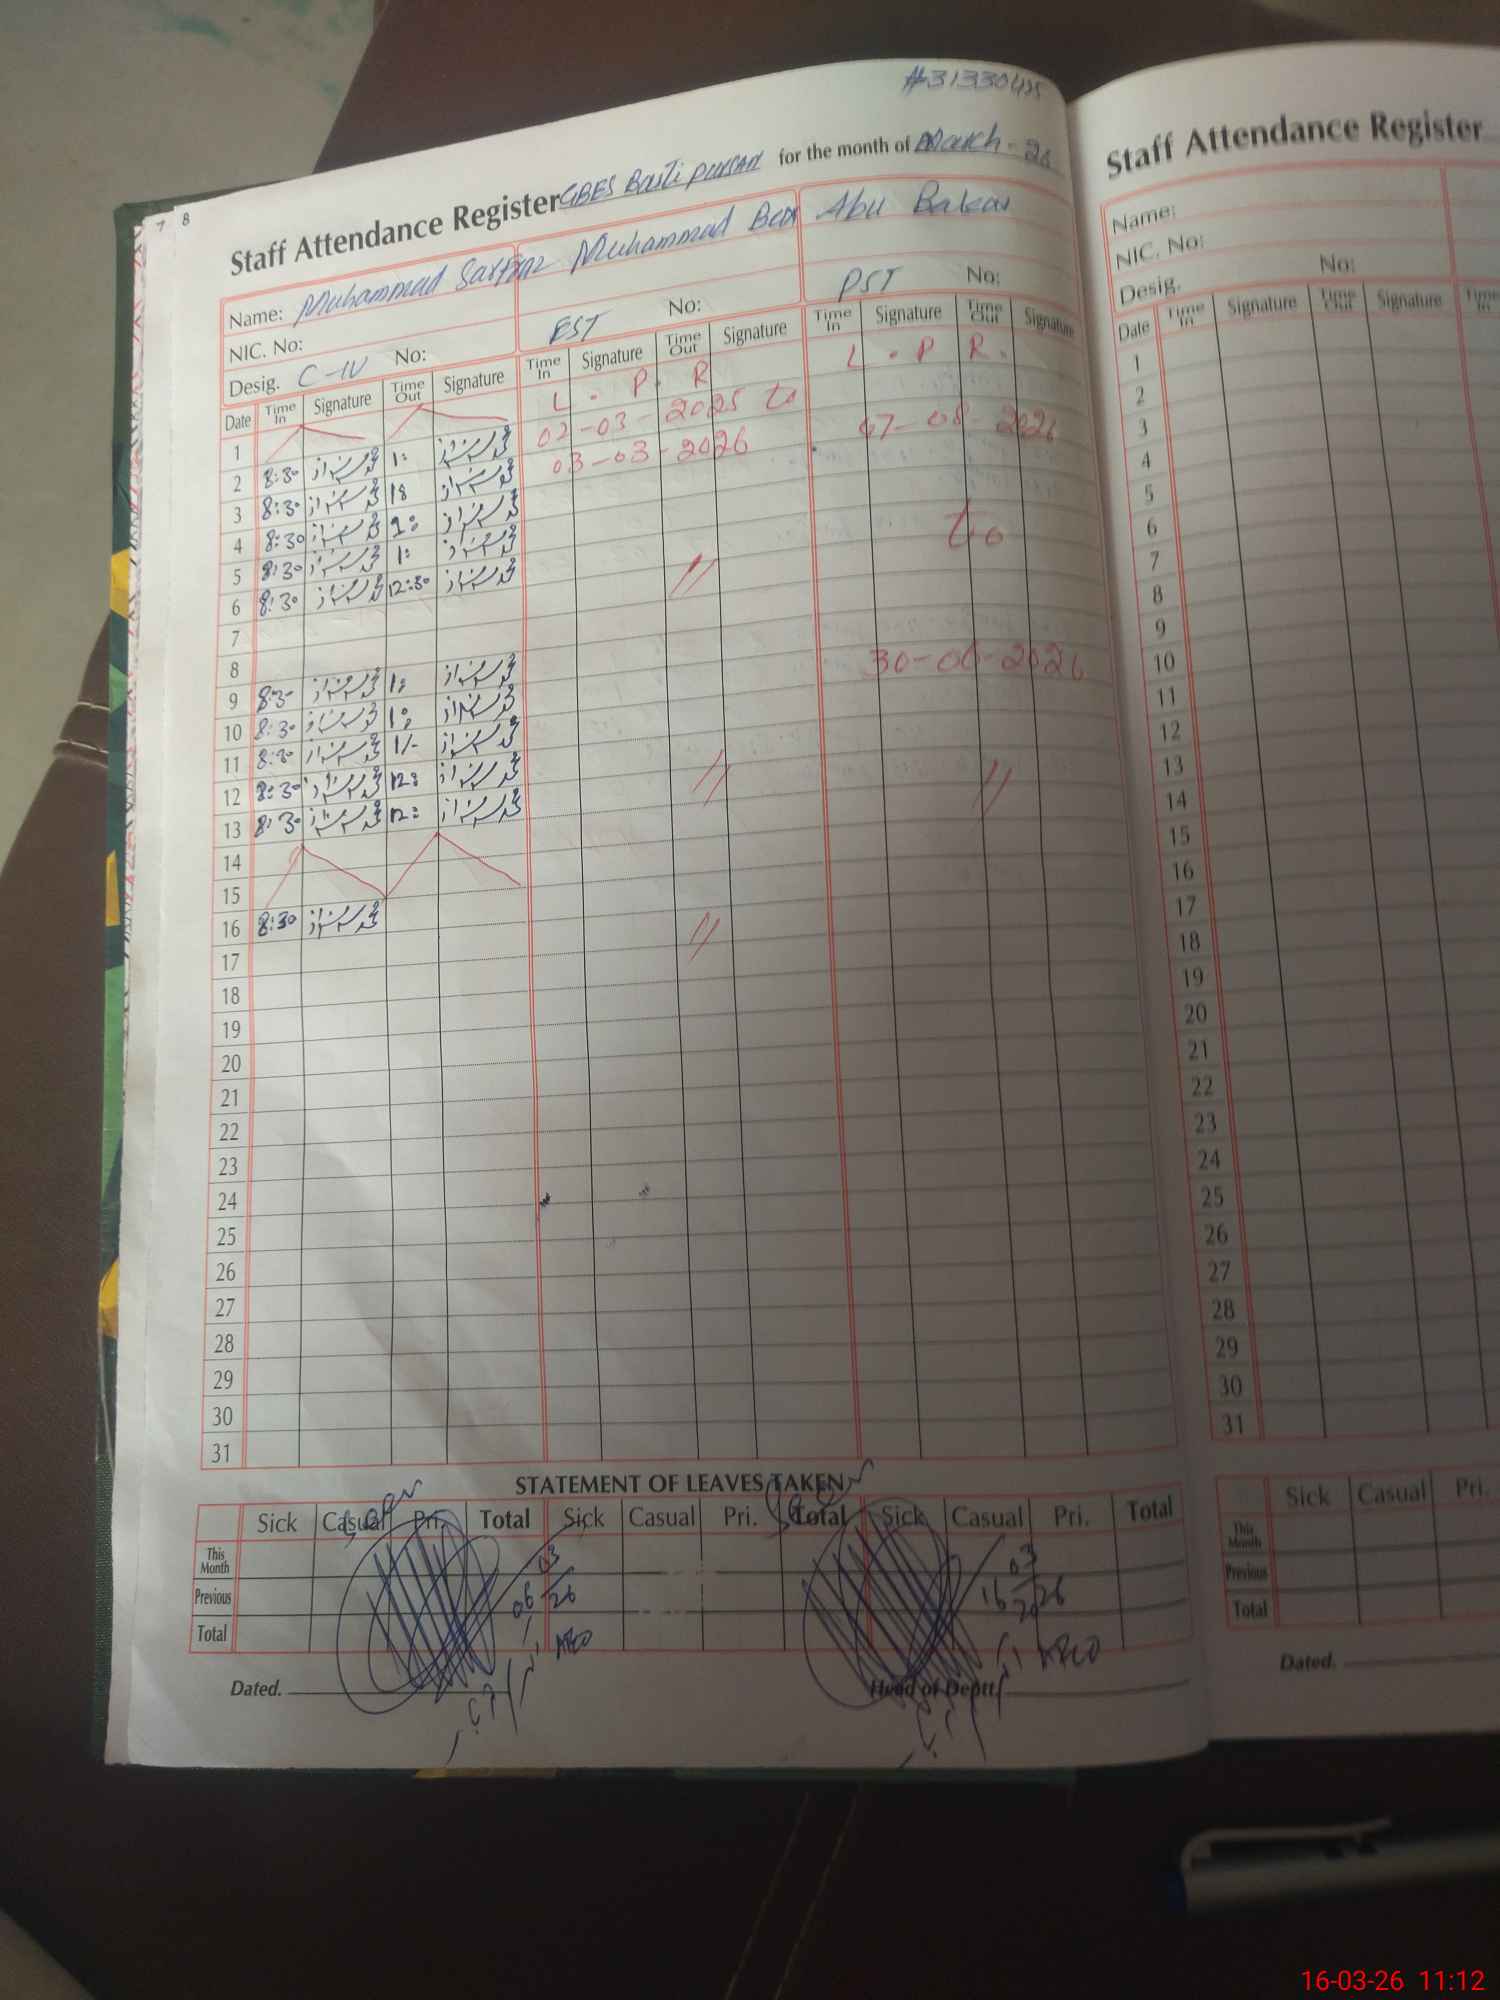 #31330425
Staff Attendance Register GBES Basti for the month of March-26
7 8
Name: Muhammad Sarfraz Muhammad Abu Bakar
NIC. No:
Desig. C-IV No: EST No: PST No:
Date Time In Signature Time Out Signature Time In Signature Time Out Signature Time In Signature Time Out Signature
1 L. P. R L. P R.
2 8:30 محمد سرفراز 1: محمد سرفراز 02-03-2025 to
3 8:30 محمد سرفراز 1: محمد سرفراز 03-03-2026 2026
4 8:30 محمد سرفراز 1: محمد سرفراز
5 8:30 محمد سرفراز 1: محمد سرفراز
6 8:30 محمد سرفراز 12:30 محمد سرفراز // To
7
8
9 8:30 محمد سرفراز 1: محمد سرفراز 30-06-2026
10 8:30 محمد سرفراز 1: محمد سرفراز
11 8:30 محمد سرفراز 1/- محمد سرفراز
12 8:30 محمد سرفراز 12: محمد سرفراز // //
13 8:30 محمد سرفراز 12: محمد سرفراز
14
15
16 8:30 محمد سرفراز //
17
18
19
20
21
22
23
24
25
26
27
28
29
30
31
STATEMENT OF LEAVES TAKEN
Sick Casual Pri. Total Sick Casual Pri. Total Sick Casual Pri. Total
This Month 03 03
Previous 06 26 16 26
Total
AEO AEO
Dated. Head of Deptt.
Staff Attendance Register
Name:
NIC. No:
Desig. No:
Date Time In Signature Time Out Signature Time
1
2
3
4
5
6
7
8
9
10
11
12
13
14
15
16
17
18
19
20
21
22
23
24
25
26
27
28
29
30
31
Sick Casual Pri.
This Month
Previous
Total
Dated.
16-03-26 11:12